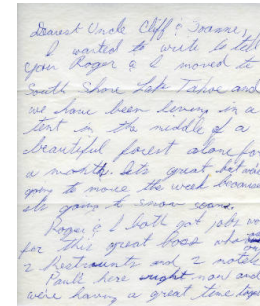 Dearest Uncle Cliff & Joanne,
I wanted to write to tell
you Roger & I moved to
South Shore Lake Tahoe and
we have been living in a
tent in the middle of a
beautiful forest alone for
a month. Its great, but were
going to move the week because
its going to snow soon.
Roger & I both got jobs
for this great boss who
2 Restraunts and 2 motels
Paul here right now and
were having a great time